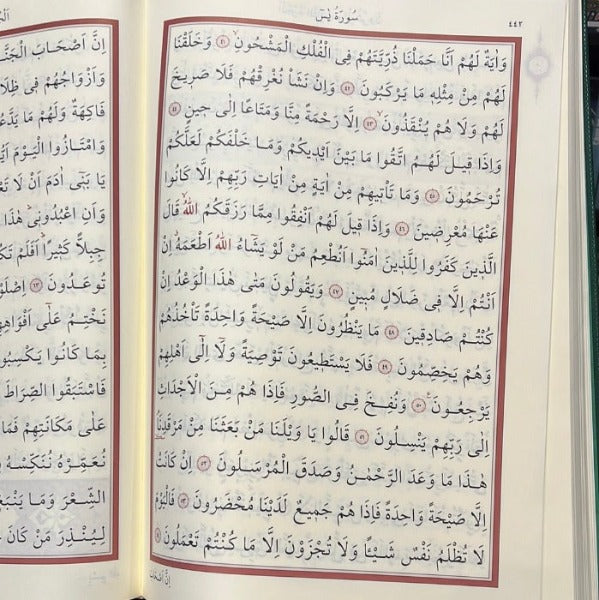 ٤٤٢
سُورَةُ يٰسٓ
وَاٰيَةٌ لَهُمْ اَنَّا حَمَلْنَا ذُرِّيَّتَهُمْ فِى الْفُلْكِ الْمَشْحُونِۙ ﴿٤١﴾ وَخَلَقْنَا
لَهُمْ مِنْ مِثْلِه۪ مَا يَرْكَبُونَ ﴿٤٢﴾ وَاِنْ نَشَأْ نُغْرِقْهُمْ فَلَا صَر۪يخَ
لَهُمْ وَلَا هُمْ يُنْقَذُونَۙ ﴿٤٣﴾ اِلَّا رَحْمَةً مِنَّا وَمَتَاعًا اِلٰى ح۪ينٍ ﴿٤٤﴾
وَاِذَا ق۪يلَ لَهُمُ اتَّقُوا مَا بَيْنَ اَيْد۪يكُمْ وَمَا خَلْفَكُمْ لَعَلَّكُمْ
تُرْحَمُونَ ﴿٤٥﴾ وَمَا تَأْت۪يهِمْ مِنْ اٰيَةٍ مِنْ اٰيَاتِ رَبِّهِمْ اِلَّا كَانُوا
عَنْهَا مُعْرِض۪ينَ ﴿٤٦﴾ وَاِذَا ق۪يلَ لَهُمْ اَنْفِقُوا مِمَّا رَزَقَكُمُ اللّٰهُۙ قَالَ
الَّذ۪ينَ كَفَرُوا لِلَّذ۪ينَ اٰمَنُٓوا اَنُطْعِمُ مَنْ لَوْ يَشَٓاءُ اللّٰهُ اَطْعَمَهُۗ اِنْ
اَنْتُمْ اِلَّا ف۪ى ضَلَالٍ مُب۪ينٍ ﴿٤٧﴾ وَيَقُولُونَ مَتٰى هٰذَا الْوَعْدُ اِنْ
كُنْتُمْ صَادِق۪ينَ ﴿٤٨﴾ مَا يَنْظُرُونَ اِلَّا صَيْحَةً وَاحِدَةً تَأْخُذُهُمْ
وَهُمْ يَخِصِّمُونَ ﴿٤٩﴾ فَلَا يَسْتَط۪يعُونَ تَوْصِيَةً وَلَٓا اِلٰٓى اَهْلِهِمْ
يَرْجِعُونَ۟ ﴿٥٠﴾ وَنُفِخَ فِى الصُّورِ فَاِذَا هُمْ مِنَ الْاَجْدَاثِ
اِلٰى رَبِّهِمْ يَنْسِلُونَ ﴿٥١﴾ قَالُوا يَا وَيْلَنَا مَنْ بَعَثَنَا مِنْ مَرْقَدِنَاۢ
هٰذَا مَا وَعَدَ الرَّحْمٰنُ وَصَدَقَ الْمُرْسَلُونَ ﴿٥٢﴾ اِنْ كَانَتْ
اِلَّا صَيْحَةً وَاحِدَةً فَاِذَا هُمْ جَم۪يعٌ لَدَيْنَا مُحْضَرُونَ ﴿٥٣﴾ فَالْيَوْمَ
لَا تُظْلَمُ نَفْسٌ شَيْـًٔا وَلَا تُجْزَوْنَ اِلَّا مَا كُنْتُمْ تَعْمَلُونَ ﴿٥٤﴾
اِنَّ اَصْحَابَ
اِنَّ اَصْحَابَ الْجَنَّ
وَاَزْوَاجُهُمْ ف۪ى ظِلَا
فَاكِهَةٌ وَلَهُمْ مَا يَدَّعُ
وَامْتَازُوا الْيَوْمَ اَيُّ
يَا بَن۪ٓى اٰدَمَ اَنْ لَا تَعْ
وَاَنِ اعْبُدُون۪ىۜ هٰذَا
جِبِلًّا كَث۪يرًاۜ اَفَلَمْ تَكُ
تُوعَدُونَ ﴿٦٣﴾ اِصْلَوْ
نَخْتِمُ عَلٰٓى اَفْوَاهِ
بِمَا كَانُوا يَكْسِبُو
فَاسْتَبَقُوا الصِّرَاطَ
عَلٰى مَكَانَتِهِمْ فَمَا
نُعَمِّرْهُ نُنَكِّسْهُ فِ
الشِّعْرَ وَمَا يَنْبَغ۪
لِيُنْذِرَ مَنْ كَانَ حَ